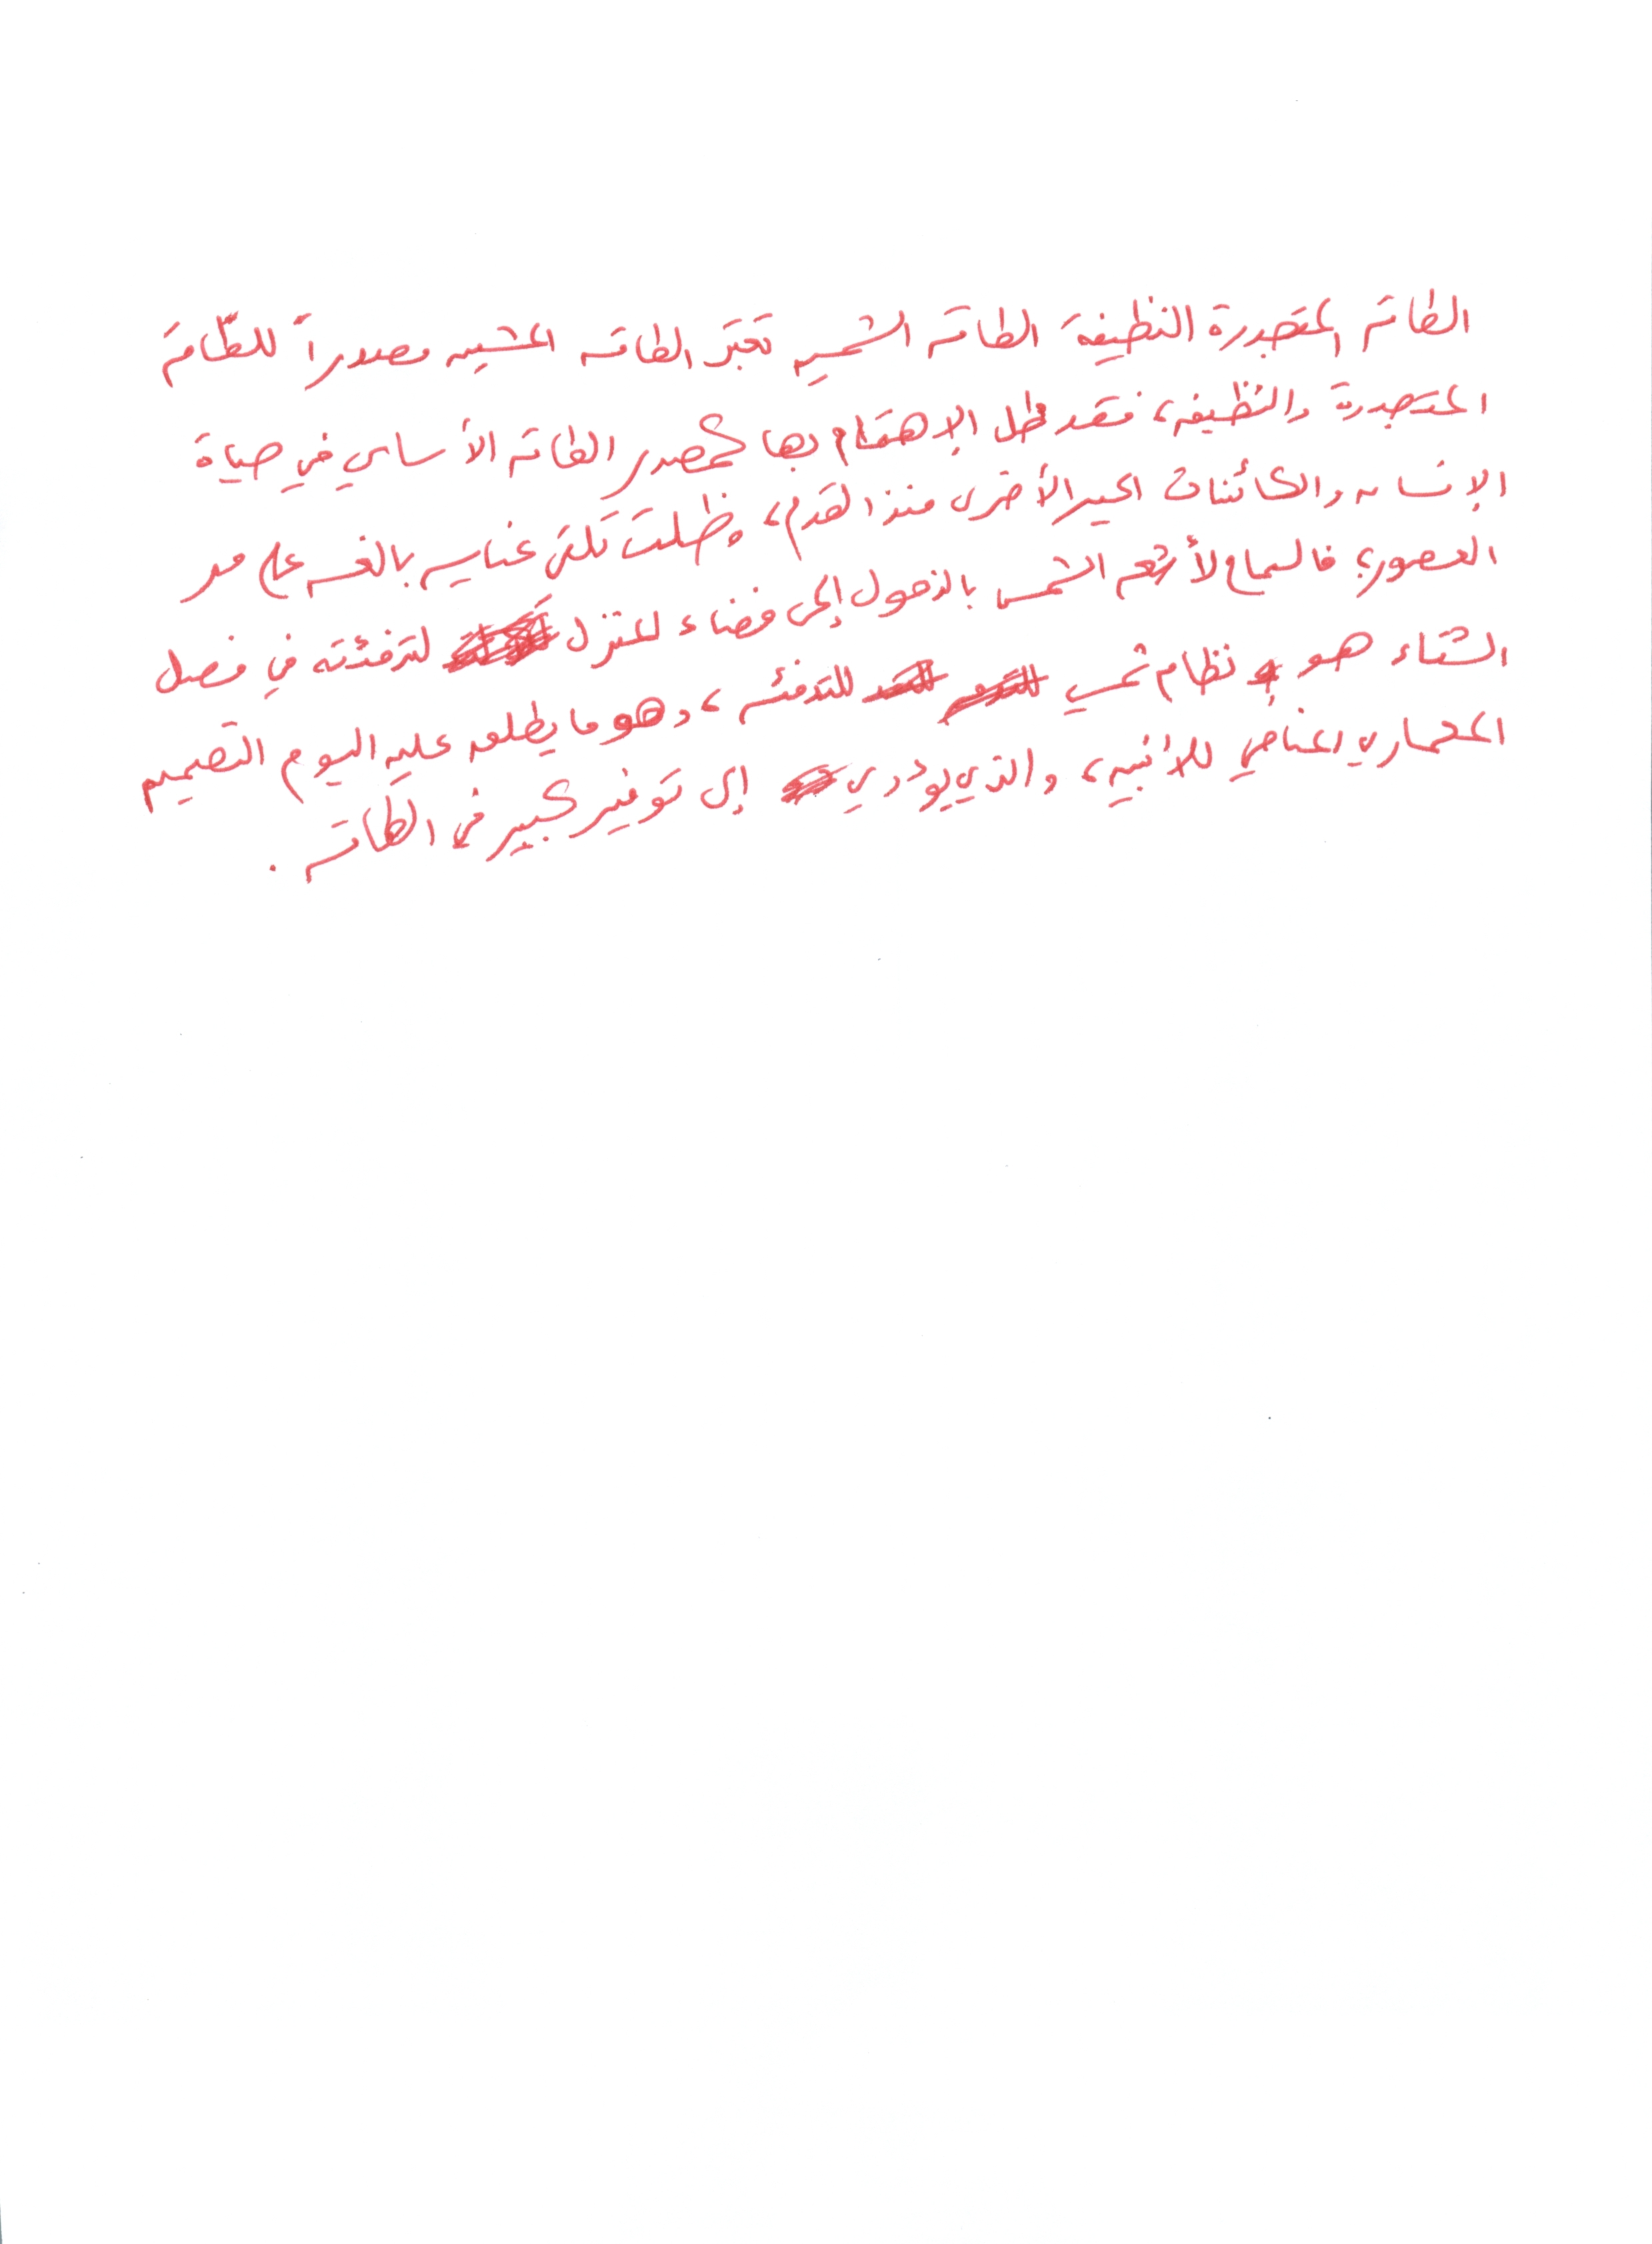 الطاقة المتجددة النظيفة الطاقة الشمسية تعتبر الطاقة الشمسية مصدراً للطّاقة
المتجددة والنظيفة، فقد ظل الإهتمام بها كمصدر الطاقة الأساسي في حياة
الإنسان والكائنات الحية الأخرى منذ القدم، وظلت تلقى عناية بالغة على مر
العصور، فالسماح لأشعة الشمس بالدخول إلى فضاء المنزل لتدفئته في فصل
الشتاء هو نظام شمسي للتدفئة، وهو ما يطلق عليه اليوم التصميم
المعماري المناخي للأبنية، والذي يؤدي إلى توفير كبير في الطاقة.